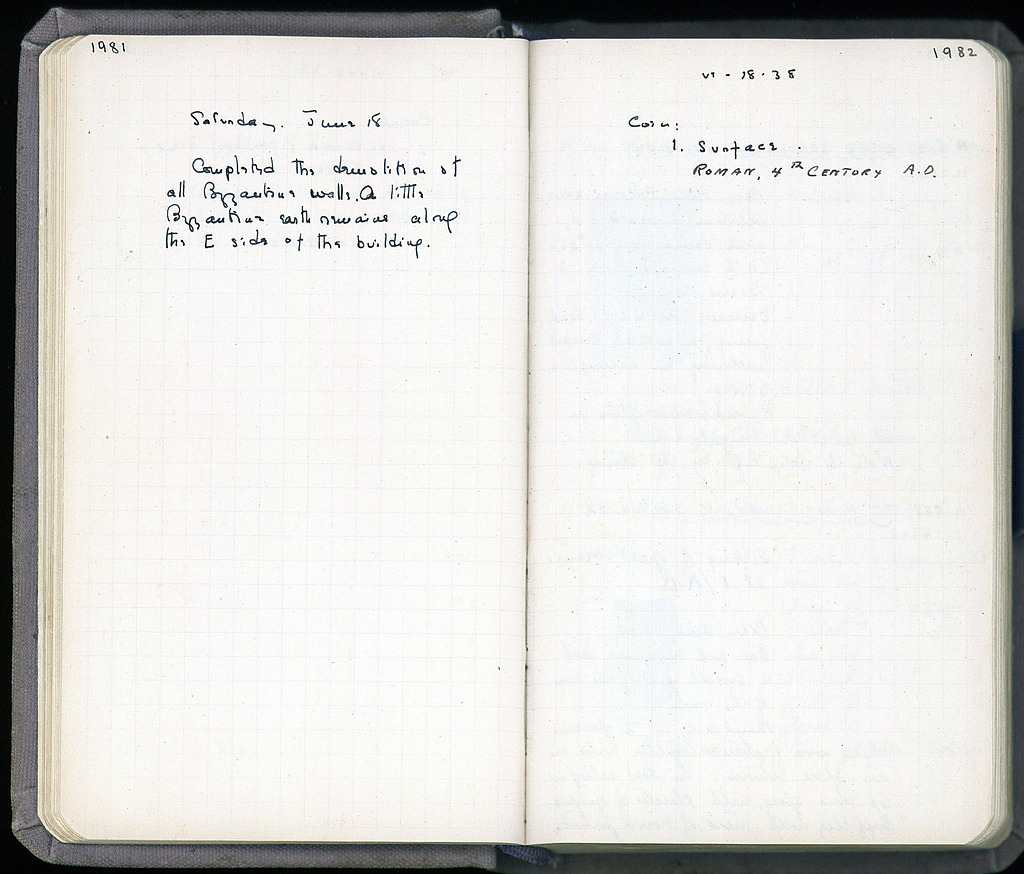 1981
Saturday. June 18
Completed the demolition of
all Byzantine walls. A little
Byzantine earth remains along
the E side of the building.
1982
VI - 18 - 38
Coin:
1. Surface.
ROMAN, 4TH CENTURY A.D.